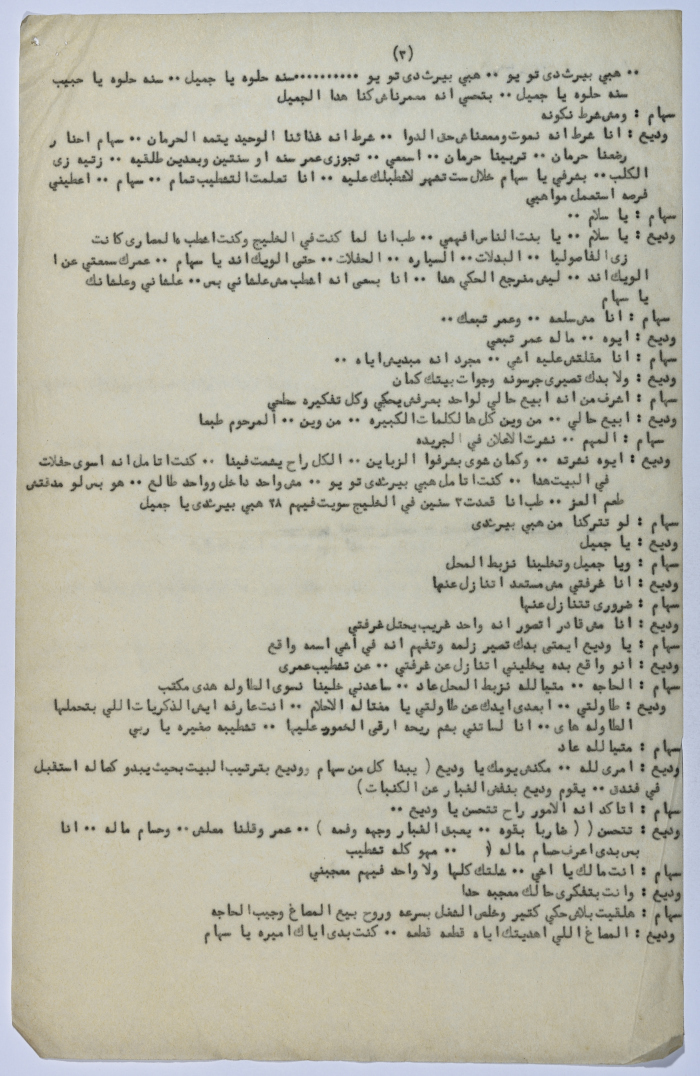 (٣)
٠٠ هبي بيرث دى تو يو ٠٠ هبي بيرث دى تو يو ٠٠٠٠٠٠٠٠٠٠سنه حلوه يا جميل ٠٠ سنه حلوه يا حبيب
سنه حلوه يا جميل ٠٠ بتحسي انه معمرناش كنا هدا الجميل
سهام : ومش شرط نكونه
وديع : انا شرط انه نموت ومعمناش حق الدوا ٠٠ شرط انه غذائنا الوحيد يتمه الحرمان ٠٠ سهام احنا ر
رضعنا حرمان ٠٠ تربينا حرمان ٠٠ اسمعي ٠٠ تجوزى عمر سنه او سنتين وبعدين طلقيه ٠٠ زتيه زى
الكلب ٠٠ بشرفي يا سهام خلال ست تشهر لاشطبلك عليه ٠٠ انا تعلمت التشطيب تمام ٠٠ سهام ٠٠ اعطيني
فرصه استعمل مواهبي
سهام : يا سلام ٠٠
وديع : يا سلام ٠٠ يا بنت الناس افهمي ٠٠ طب انا لما كنت في الخليج وكنت اشطب هالمصارى كانت
زى الفاصوليا ٠٠ البدلات ٠٠ السياره ٠٠ الحفلات ٠٠ حتى الويك اند يا سهام ٠٠ عمرك سمعتي عن ا
الويك اند ٠٠ ليش منرجع الحكي هدا ٠٠ انا بسعى انه اشطب مش علشاني بس ٠٠ علشاني وعلشانك
يا سهام
سهام : انا مش سلعه ٠٠ وعمر تبعك ٠٠
وديع : ايوه ٠٠ ماله عمر تبعي
سهام : انا مقلتش عليه اشي ٠٠ مجرد انه مبديش اياه ٠٠
وديع : ولا بدك تصيرى جرسونه وجوات بيتك كمان
سهام : اشرف من انه ابيع حالي لواحد بعرفش يحكي وكل تفكيره سطحي
وديع : ابيع حالي ٠٠ من وين كل هالكلمات الكبيره ٠٠ من وين ٠٠ المرحوم طبعا
سهام : المهم ٠٠ نشرت الاعلان في الجريده
وديع : ايوه نشرته ٠٠ وكمان شوى بشرفوا الزباين ٠٠ الكل راح يشمت فينا ٠٠ كنت اتامل انه اسوى حفلات
في البيت هدا ٠٠ كنت اتامل هبي بيرثدى تو يو ٠٠ مش واحد داخل وواحد طالع ٠٠ هو بس لو مدقتش
طعم العز ٠٠ طب انا قعدت ٣ سنين في الخليج سويت فيهم ٢٨ هبي بيرثدى يا جميل
سهام : لو تتركنا من هبي بيرثدى
وديع : يا جميل
سهام : ويا جميل وتخلينا نزبط المحل
وديع : انا غرفتي مش مستعد اتنازل عنها
سهام : ضرورى تتنازل عنها
وديع : انا مش قادر اتصور انه واحد غريب يحتل غرفتي
سهام : يا وديع ايمتى بدك تصير زلمه وتفهم انه في اشي اسمه واقع
وديع : انو واقع بده يخليني اتنازل عن غرفتي ٠٠ عن تشطيب عمرى
سهام : الحاجه ٠٠ متيالله نزبط المحل عاد ٠٠ ساعدني خلينا نسوى الطاوله هدى مكتب
وديع : طاولتي ٠٠ ابعدى ايدك عن طاولتي يا مغتاله الاحلام ٠٠ انت عارفه ايش الذكريات اللي بتحملها
الطاوله هاى ٠٠ انا لساتني بشم ريحه ارقى الخمور عليها ٠٠ تشطيبه صغيره يا ربي
سهام : متيالله عاد
وديع : امرى لله ٠٠ مكنش يومك يا وديع ( يبدا كل من سهام ووديع بترتيب البيت بحيث يبدو كصاله استقبل
في فندق ٠٠ يقوم وديع بنفض الغبار عن الكنبات )
سهام : اتاكد انه الامور راح تتحسن يا وديع ٠٠
وديع : تتحسن ( ( ضاربا بقوه ٠٠ يعبق الغبار وجهه وفمه ) ٠٠ عمر وقلنا معلش ٠٠ وصام ماله ٠٠ انا
بس بدى اعرف صام ماله ( ٠٠ مهو كله تشطيب
سهام : انت مالك يا اخي ٠٠ شلتك كلها ولا واحد فيهم معجبني
وديع : وانت بتفكرى حالك معجبه حدا
سهام : هلقيت بلاش حكي كتير وخلص الشغل بسرعه وروح بيع المصاغ وجيب الحاجه
وديع : المصاغ اللي اهديتك اياه قطعه قطعه ٠٠ كنت بدى اياك اميره يا سهام